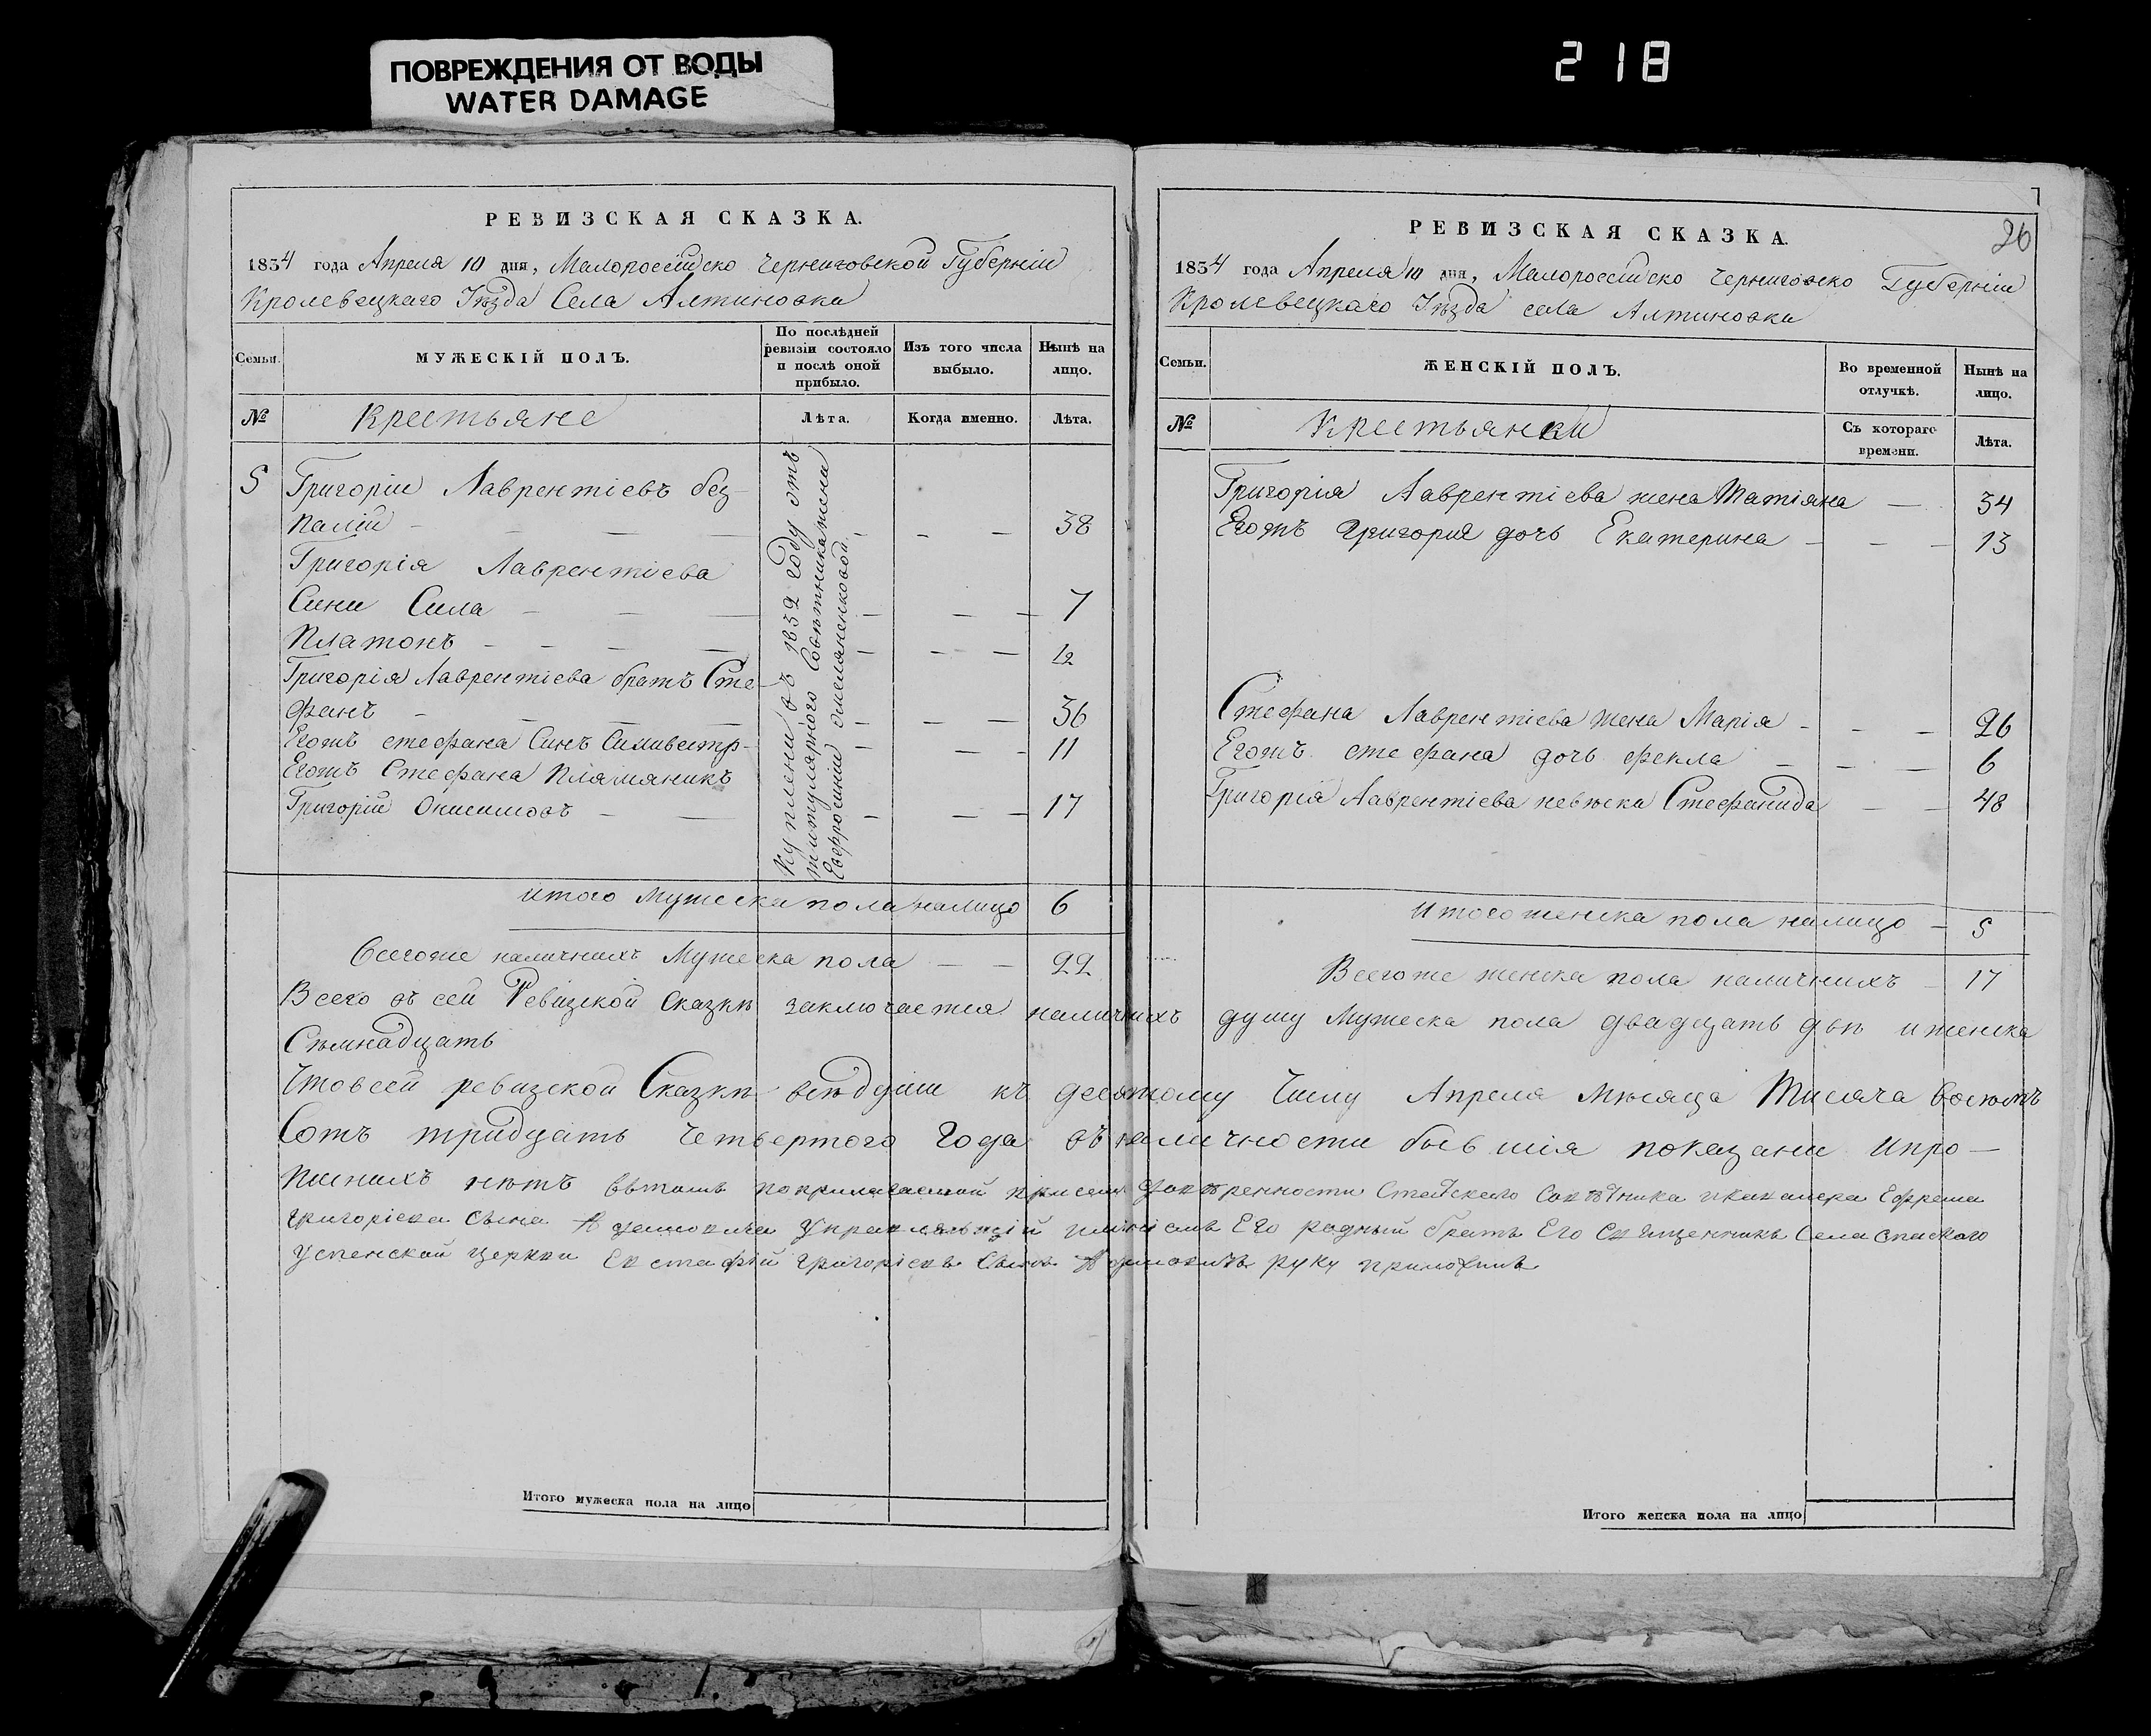 ПОВРЕЖДЕНИЯ ОТ ВОДЫ
WATER DAMAGE
218
РЕВИЗСКАЯ СКАЗКА.
1834 года Апреля 10 дня, Малороссійско Черниговской Губерніи
Кролевецкаго Уѣзда Села Алтиновки
Семьи.
МУЖЕСКІЙ ПОЛЪ.
По послѣдней ревизіи состояло и послѣ оной прибыло.
Изъ того числа выбыло.
Нынѣ на лицо.
№
Крестьяне
Лѣта.
Когда именно.
Лѣта.
5 Григорій Лаврентіевъ без-
палій - — — - - — 38
Григорія Лаврентіева
Сини Сила - — — — — — 7
Платонъ - - - — — - — 12
Григорія Лаврентіева братъ Сте-
фанъ - — — — — — — 36
Егожъ стефана Синъ Силивестр- — — — 11
Егожъ Стефана Плямяникъ
Григорій Онисимовъ - — — — — 17
Куплени въ 1832 году отъ
титулярного Совѣтника жени
Евфросиніи
итого Мужеска пола налицо 6
Всегоже наличнихъ Мужеска пола — — 22
РЕВИЗСКАЯ СКАЗКА.
26
1834 года Апреля 10 дня, Малороссійско Черниговско Губерніи
Кролевецкаго Уѣзда села Алтиновки
Семьи.
ЖЕНСКІЙ ПОЛЪ.
Во временной отлучкѣ.
Нынѣ на лицо.
№
Крестьянки
Съ котораго времени.
Лѣта.
Григорія Лаврентіева жена Татіяна — 34
Егожъ Григория дочь Екатерина - — - 13
Стефана Лаврентіева жена Марія - - — 26
Егожъ стефана дочь фекла — — — 6
Григорія Лаврентіева невѣска Стефанида — — 48
Итого женска пола налицо - 5
Всегоже женска пола наличнихъ - 17
Всего въ сей Ревизской Сказкѣ заключается наличнихъ душу Мужеска пола двадцать двѣ и женска
Сѣмнадцать
Что всей ревизской Сказкѣ всѣ души къ десятому Числу Апреля Мѣсяца Тисяча восемъ
Сотъ тридцать четвертого Года въ наличности бывшія показани И про-
писнихъ нѣтъ втомъ по прилагаемой при семъ довѣренности Статского Совѣтника и кавалера Ефрема
григоріева Сына управляющій имѣніемъ Его родный братъ Его Священникъ Села Спаского
Успенской церкви Евстафій григоріевъ Сынъ руку приложилъ
Итого мужеска пола на лицо
Итого женска пола на лицо